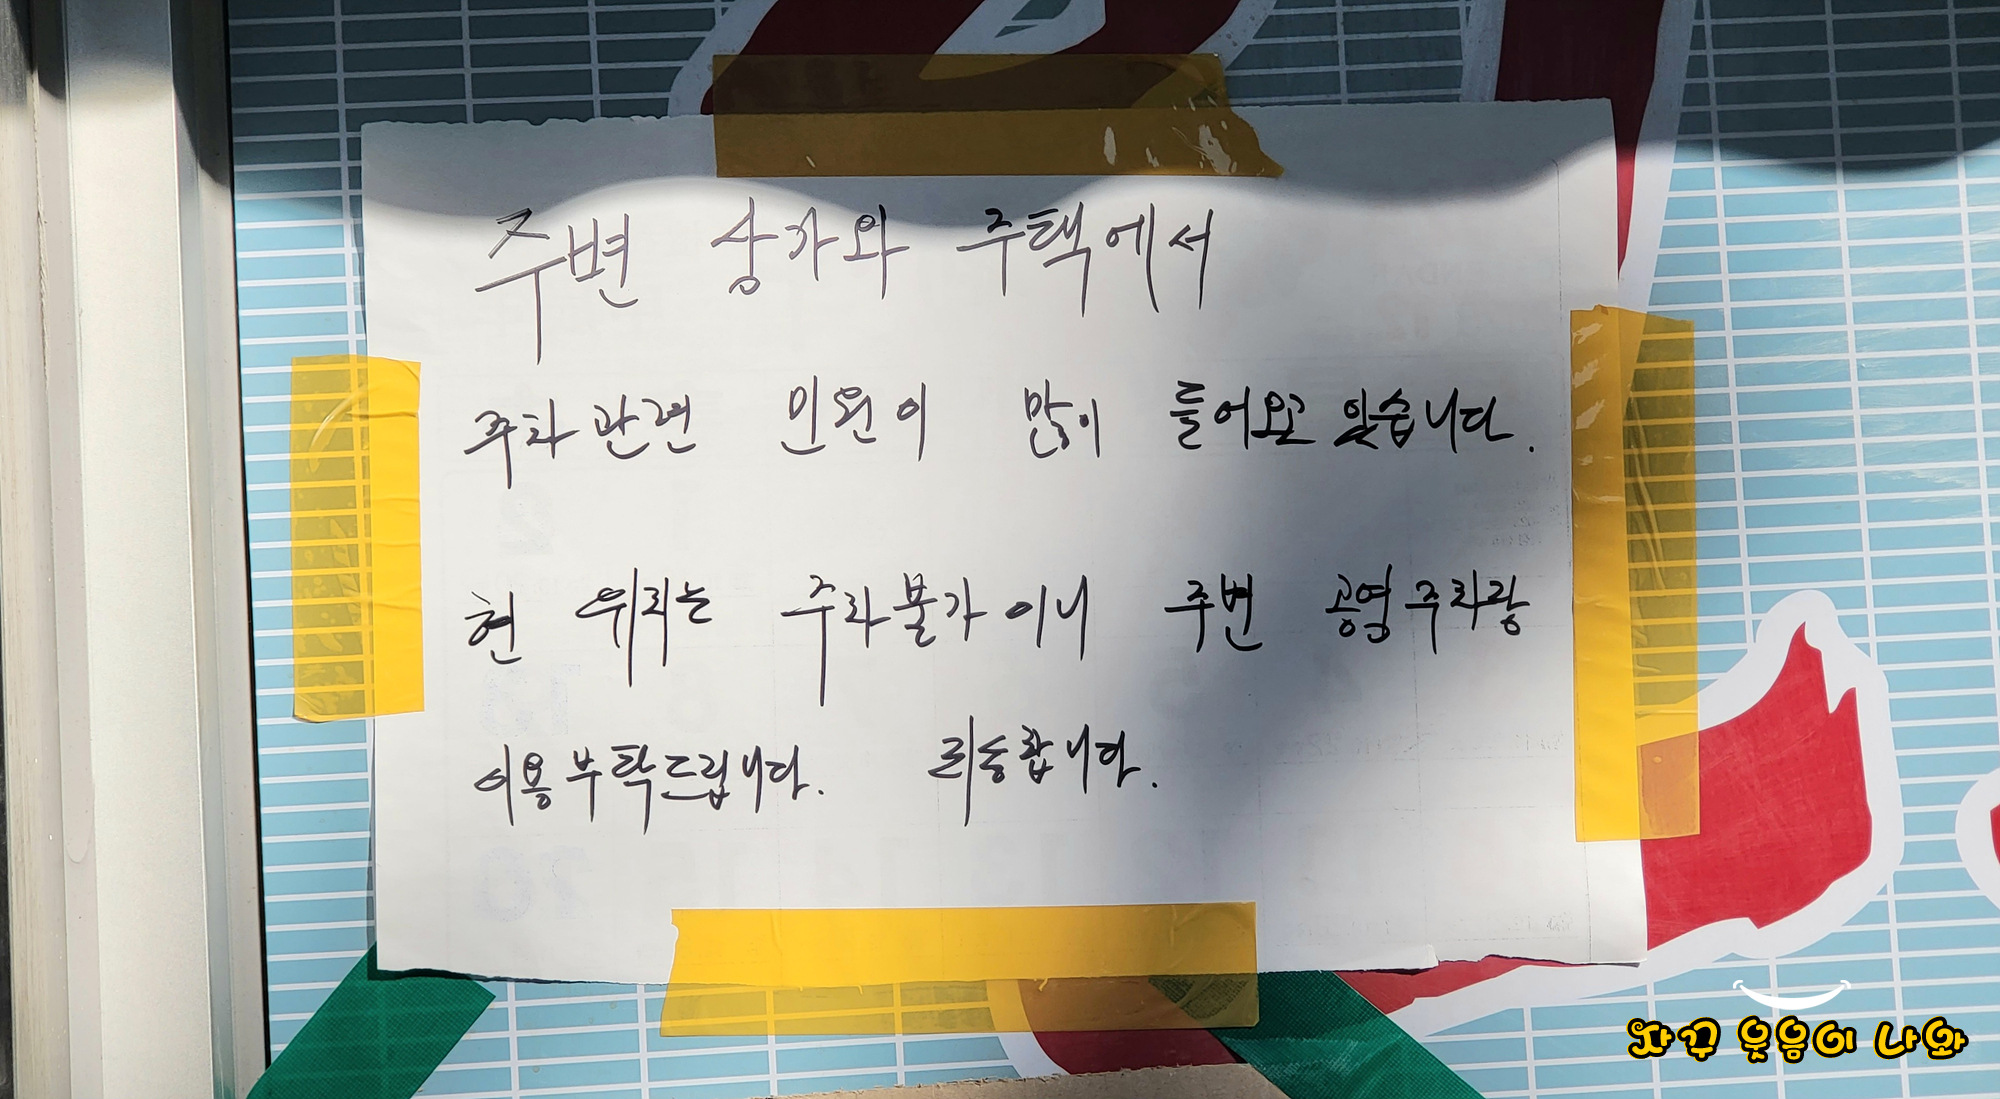 주변 상가와 주택에서
주차관련 민원이 많이 들어오고 있습니다.
현 위치는 주차불가이니 주변 공영주차장
이용부탁드립니다. 죄송합니다.
자꾸 웃음이 나와